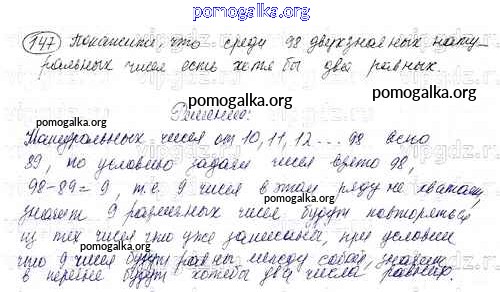 pomogalka.org
147 Покажите, что среди 98 двухзначных нату-
ральных чисел есть хотя бы два равных.
pomogalka.org pomogalka.org
Решение:
pomogalka.org
Натуральных чисел от 10, 11, 12 ... 98 всего
pomogalka.org
89, по условию задачи чисел взято 98,
98-89=9, т.е. 9 чисел в этом ряду не хватает,
значит 9 различных чисел будут повторяться
pomogalka.org pomogalka.org
из тех чисел что уже записаны, при условии
что 9 чисел будут равны между собой, значит
в перечне будут хотябы два числа равных.
pomogalka.org